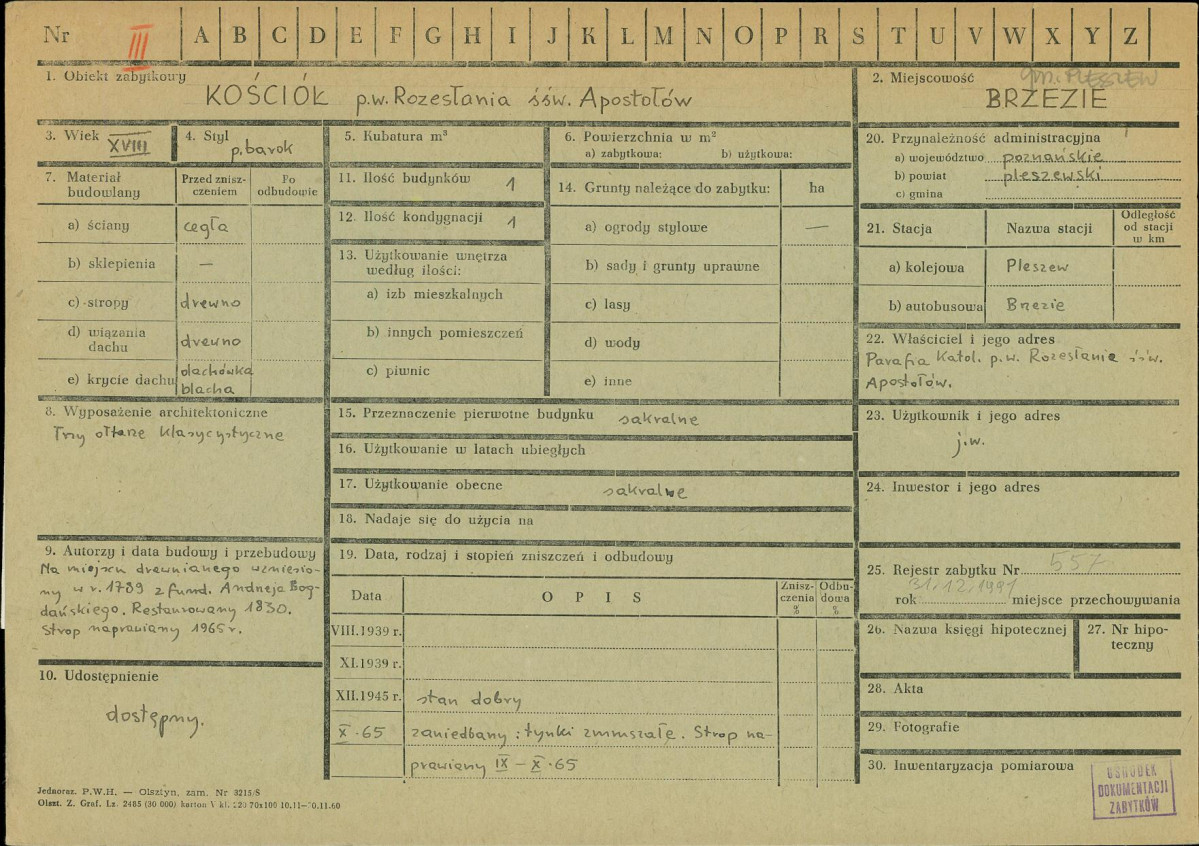 Nr III A B C D E F G H I J K L M N O P R S T U V W X Y Z
1. Obiekt zabytkowy
KOŚCIÓŁ p.w. Rozesłania śśw. Apostołów
2. Miejscowość gm. PLESZEW
BRZEZIE
3. Wiek XVIII
4. Styl
p. barok
5. Kubatura m³
6. Powierzchnia w m²
a) zabytkowa: b) użytkowa:
20. Przynależność administracyjna
a) województwo poznańskie
b) powiat pleszewski
c) gmina
7. Materiał budowlany
Przed zniszczeniem
Po odbudowie
a) ściany cegła
b) sklepienia —
c) stropy drewno
d) wiązania dachu drewno
e) krycie dachu dachówka
blacha
11. Ilość budynków 1
12. Ilość kondygnacji 1
13. Użytkowanie wnętrza
według ilości:
a) izb mieszkalnych
b) innych pomieszczeń
c) piwnic
14. Grunty należące do zabytku: ha
a) ogrody stylowe —
b) sady i grunty uprawne
c) lasy
d) wody
e) inne
21. Stacja Nazwa stacji Odległość od stacji w km
a) kolejowa Pleszew
b) autobusowa Brzezie
22. Właściciel i jego adres
Parafia Katol. p.w. Rozesłania śśw.
Apostołów.
8. Wyposażenie architektoniczne
Trzy ołtarze klasycystyczne
15. Przeznaczenie pierwotne budynku sakralne
16. Użytkowanie w latach ubiegłych
17. Użytkowanie obecne sakralne
18. Nadaje się do użycia na
23. Użytkownik i jego adres
j.w.
24. Inwestor i jego adres
9. Autorzy i data budowy i przebudowy
Na miejscu drewnianego wzniesio-
ny w r. 1789 z fund. Andrzeja Bog-
dańskiego. Restaurowany 1830.
Strop naprawiany 1965 r.
10. Udostępnienie
dostępny.
19. Data, rodzaj i stopień zniszczeń i odbudowy
Data OPIS Zniszczenia % Odbudowa %
VIII.1939 r.
XI.1939 r.
XII.1945 r. stan dobry
X.65 zaniedbany: tynki zmurszałe. Strop na-
prawiany IX – X.65
25. Rejestr zabytku Nr 557
rok 31.12.1991 miejsce przechowywania
26. Nazwa księgi hipotecznej
27. Nr hipo-
teczny
28. Akta
29. Fotografie
30. Inwentaryzacja pomiarowa
OŚRODEK
DOKUMENTACJI
ZABYTKÓW
Jednoraz. P.W.H. — Olsztyn, zam. Nr 3215/S
Olszt. Z. Graf. Lz. 2485 (30 000) karton V kl.